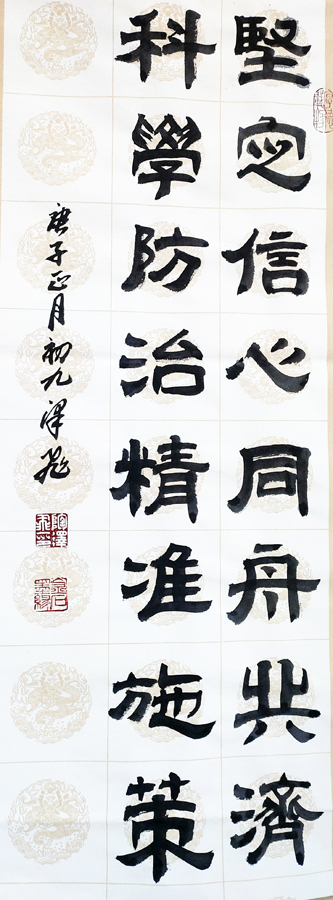 堅定信心同舟共濟
科學防治精准施策
庚子正月初九澤飛